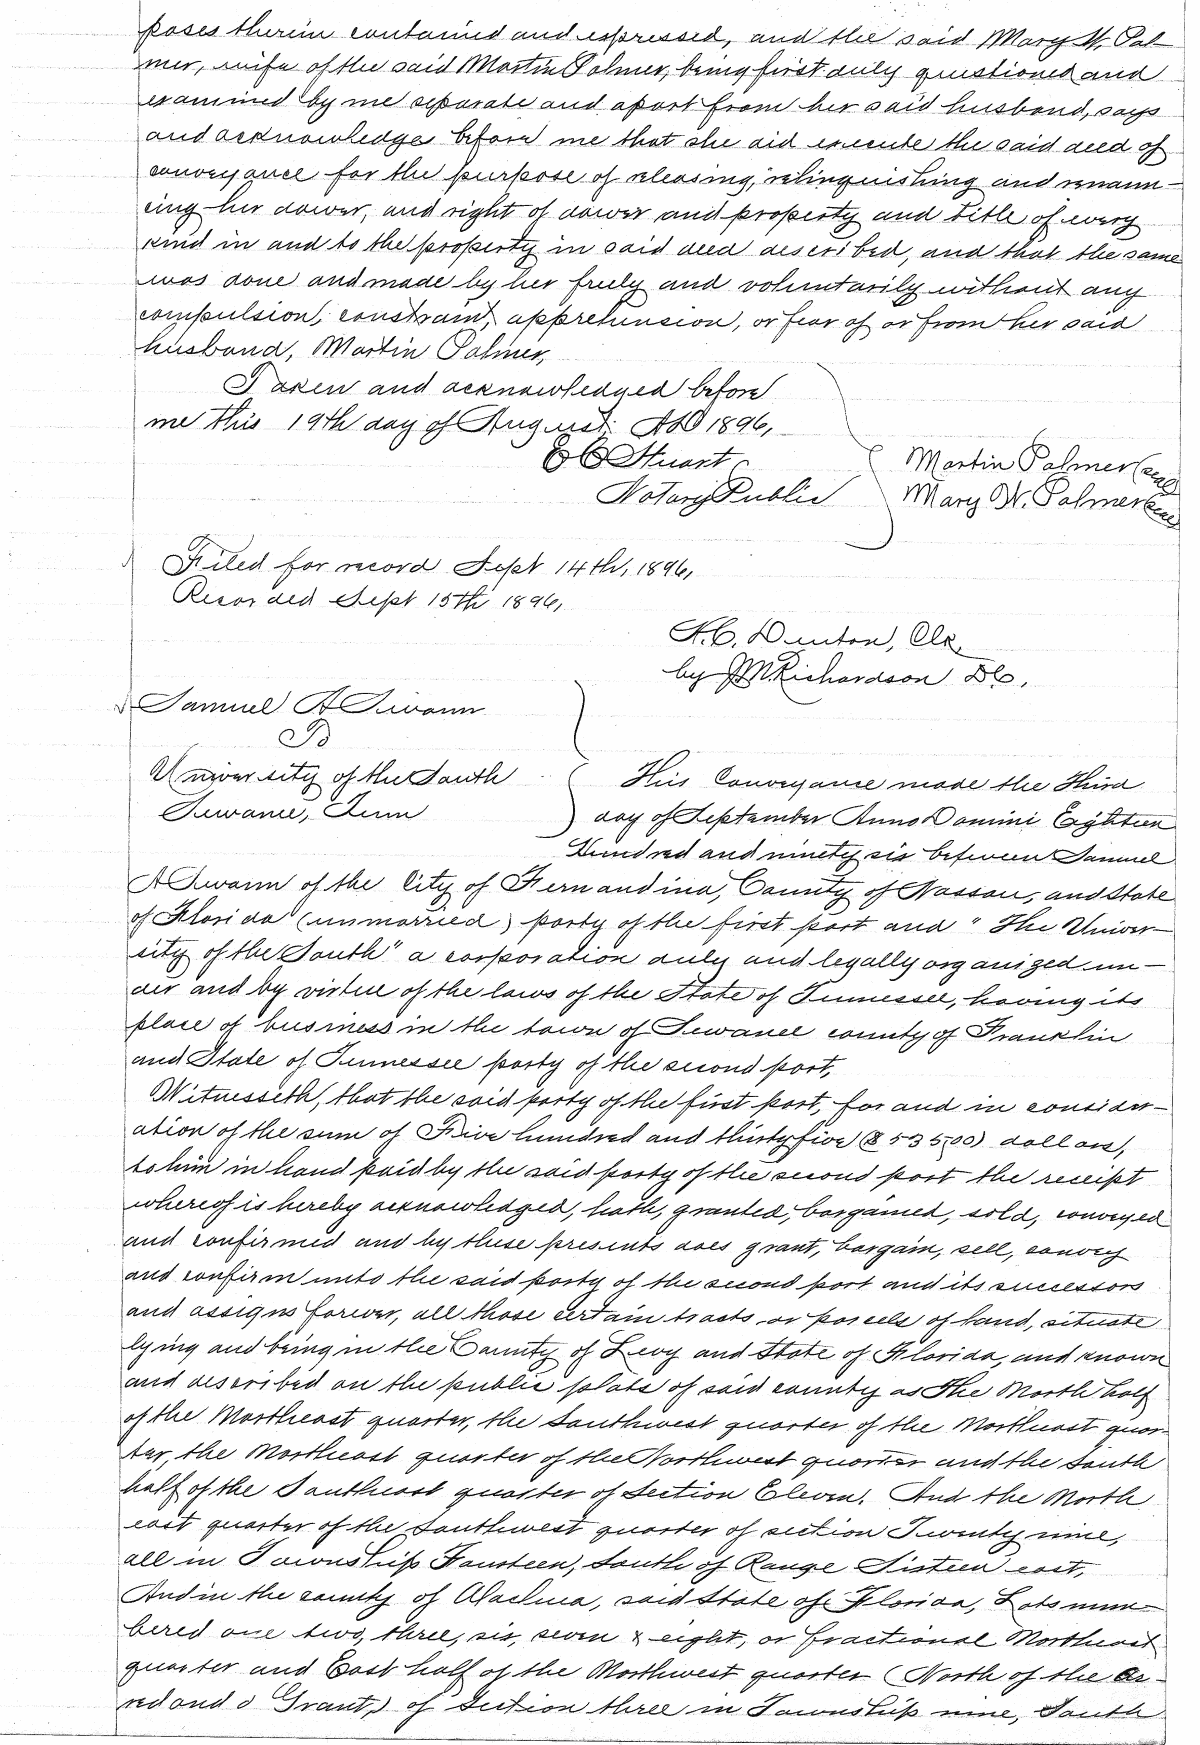 poses therein contained and expressed, and the said Mary W. Pal-
mer, wife of the said Martin Palmer, being first duly questioned and
examined by me separate and apart from her said husband, says
and acknowledge before me that she did execute the said deed of
conveyance for the purpose of releasing, relinquishing and renoun-
cing her dower, and right of dower and property and title of every
kind in and to the property in said deed described, and that the same
was done and made by her freely and voluntarily without any
compulsion, constraint, apprehension, or fear of or from her said
husband, Martin Palmer,
Taken and acknowledged before
me this 19th day of August. AD 1896,
E C Stuart
Notary Public
Martin Palmer (seal)
Mary W. Palmer (seal)
Filed for record Sept 14th, 1896,
Recorded Sept 15th 1896,
H. C. Denton, Clk,
by J M Richardson DC,
Samuel A Swann
To
University of the South
Sewanee, Tenn
This Conveyance made the Third
day of September Anno Domini Eighteen
Hundred and ninety six between Samuel
A Swann of the City of Fernandina, County of Nassau, and State
of Florida (unmarried) party of the first part and "The Univer-
sity of the South" a corporation duly and legally organized un-
der and by virtue of the laws of the State of Tennessee, having its
place of business in the town of Sewanee county of Franklin
and State of Tennessee party of the second part,
Witnesseth, that the said party of the first part, for and in consider-
ation of the sum of Five hundred and thirty five ($535.00) dollars,
to him in hand paid by the said party of the second part the receipt
whereof is hereby acknowledged, hath, granted, bargained, sold, conveyed
and confirmed and by these presents does grant, bargain, sell, convey
and confirm unto the said party of the second part and its successors
and assigns forever, all those certain tracts or parcels of land, situate
lying and being in the County of Levy and State of Florida, and known
and described on the public plats of said county as The North half
of the Northeast quarter, the Southwest quarter of the Northeast quar-
ter, the Northeast quarter of the Northwest quarter and the South
half of the Southeast quarter of Section Eleven. And the North
east quarter of the Southwest quarter of section Twenty nine,
all in Township Fourteen, South of Range Sixteen east,
And in the county of Alachua, said State of Florida, Lots num-
bered one two, three, six, seven & eight, or fractional Northeast
quarter and East half of the Northwest quarter (North of the Ar-
redondo Grant,) of Section three in Township nine, South